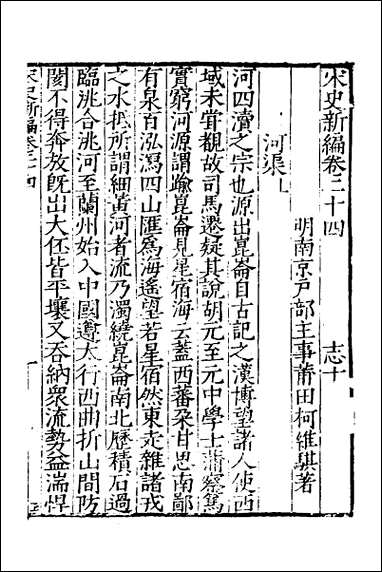 宋史新編卷三十四 志十
明南京戸部主事莆田柯維騏著
河渠上
河四瀆之宗也源出崑崙自古記之漢博望諸人使西
域未甞觀故司馬遷疑其說胡元至元中學士蒲察篤
實窮河源謂踰崑崙見星宿海云蓋西番朶甘思南鄙
有泉百泓瀉四山匯爲海遥望若星宿然東走雜諸戎
之水抵所謂細黄河者流乃濁繞崑崙南北歷積石過
臨洮合洮河至蘭州始入中國遵太行西曲折山間防
閡不得奔放旣出大伾皆平壤又吞納衆流勢益湍悍
宋史新編卷三十四